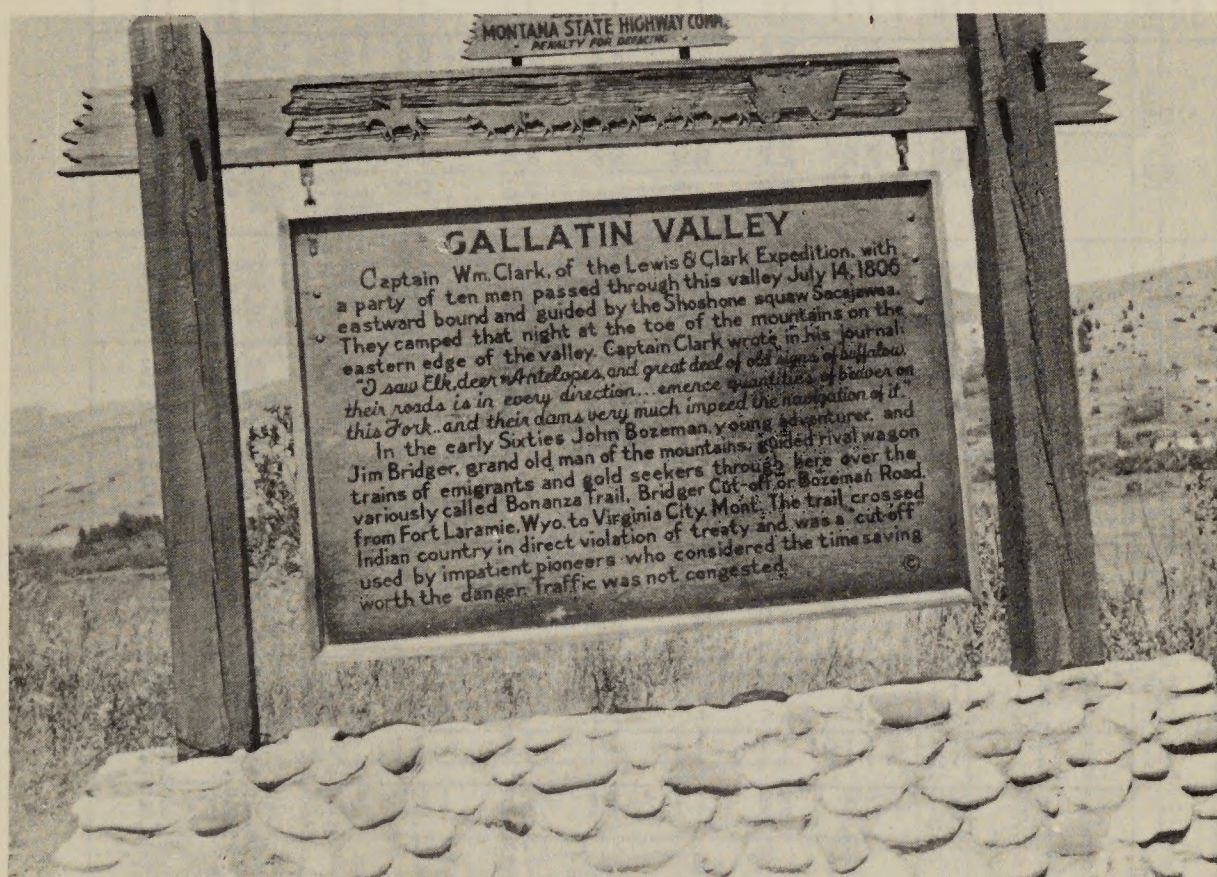 MONTANA STATE HIGHWAY COMM.
PENALTY FOR DEFACING
GALLATIN VALLEY
Captain Wm. Clark, of the Lewis & Clark Expedition, with
a party of ten men passed through this valley July 14, 1806
eastward bound and guided by the Shoshone squaw Sacajawea.
They camped that night at the toe of the mountains on the
eastern edge of the valley. Captain Clark wrote in his journal:
"I saw Elk, deer & Antelopes, and great deel of old signs of buffalow,
their roads is in every direction...emence quantities of beaver on
this Fork..and their dams very much impeed the navigation of it."
In the early Sixties John Bozeman, young adventurer, and
Jim Bridger, grand old man of the mountains, guided rival wagon
trains of emigrants and gold seekers through here over the
variously called Bonanza Trail, Bridger Cut-off or Bozeman Road,
from Fort Laramie, Wyo. to Virginia City, Mont. The trail crossed
Indian country in direct violation of treaty and was a "cut off"
used by impatient pioneers who considered the time saving
worth the danger. Traffic was not congested.
©